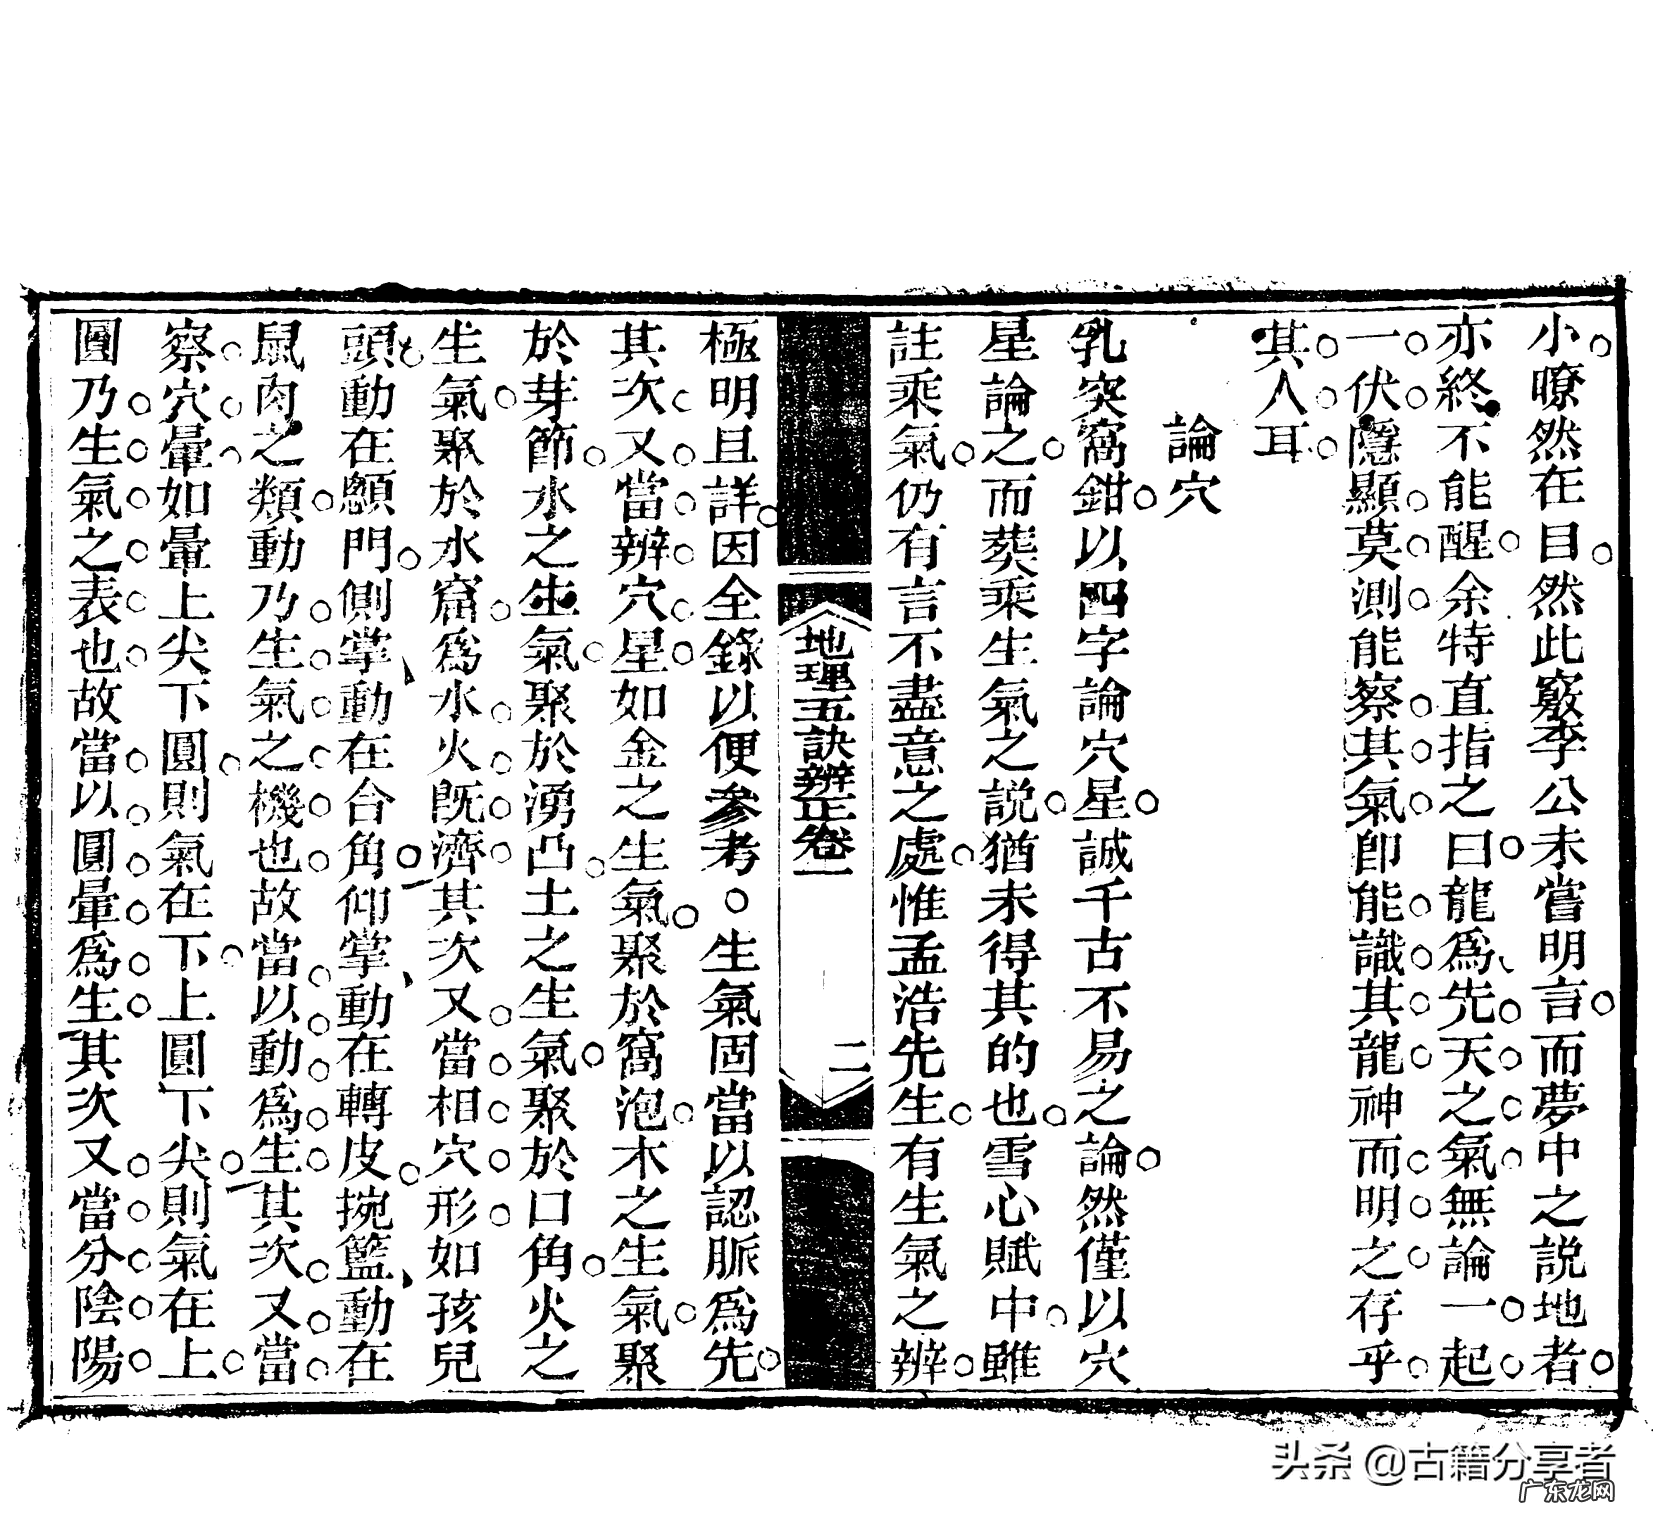 小暸然在目然此竅李公未嘗明言而夢中之説地者
亦終不能醒余特直指之曰龍爲先天之氣無論一起
一伏隱顯莫測能察其氣卽能識其龍神而明之存乎
其人耳
論穴
乳突窩鉗以四字論穴星誠千古不易之論然僅以穴
星論之而葬乘生氣之説猶未得其的也雪心賦中雖
註乘氣仍有言不盡意之處惟孟浩先生有生氣之辨
地理五訣辨正卷一
二
極明且詳因全錄以便參考○生氣固當以認脈爲先
其次又當辨穴星如金之生氣聚於窩泡木之生氣聚
於芽節水之生氣聚於湧凸土之生氣聚於口角火之
生氣聚於水窟爲水火旣濟其次又當相穴形如孩兒
頭動在顖門側掌動在合角仰掌動在轉皮捥籃動在
鼠肉之類動乃生氣之機也故當以動爲生其次又當
察穴暈如暈上尖下圓則氣在下上圓下尖則氣在上
圓乃生氣之表也故當以圓暈爲生其次又當分陰陽
头条 @古籍分享者
广东龙网